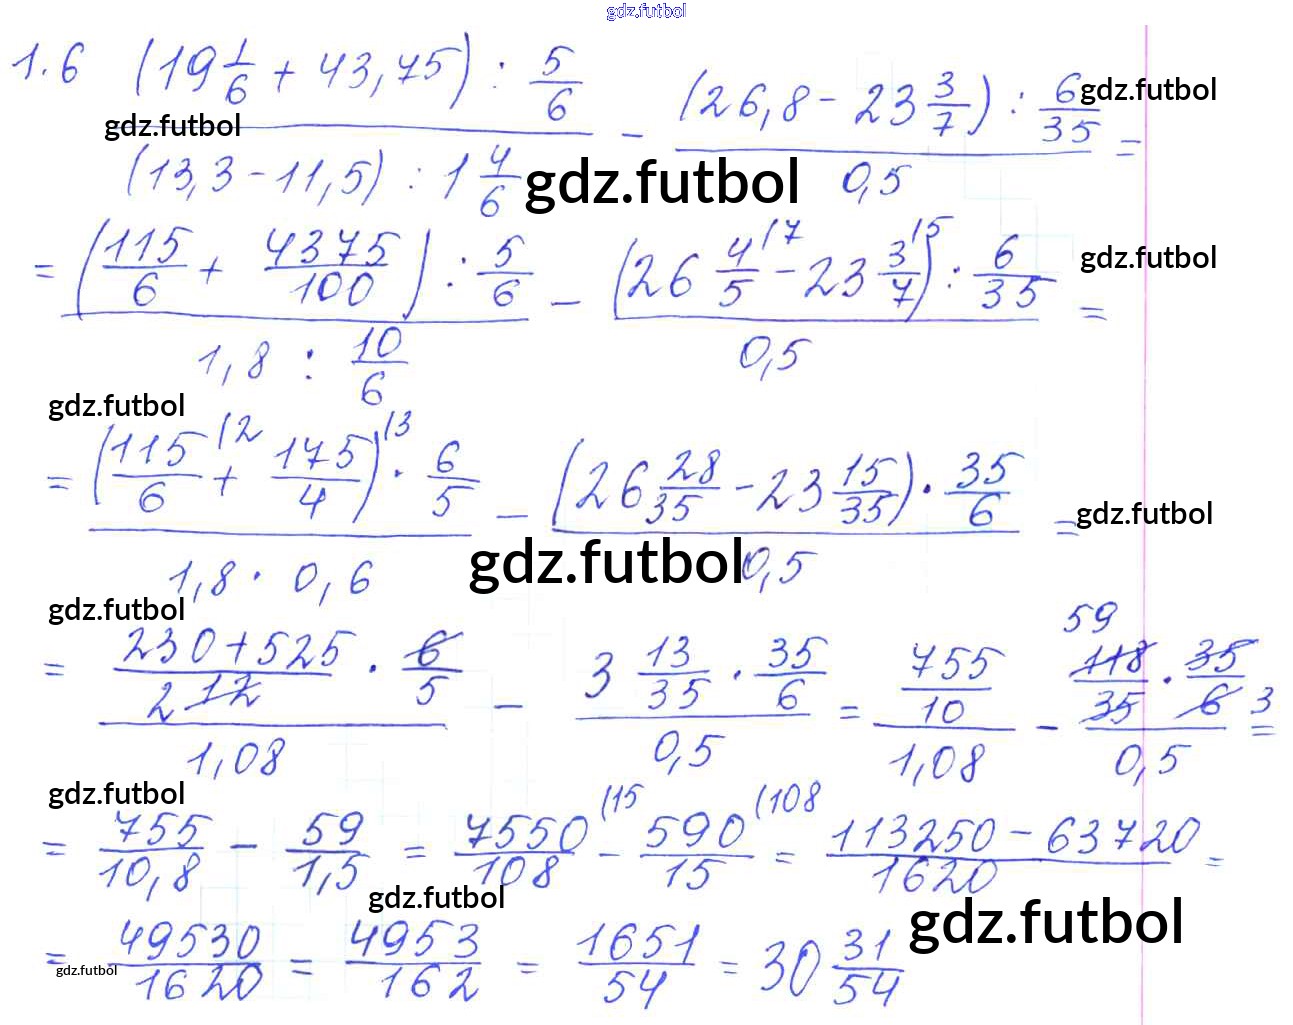 gdz.futbol
1.6 (19 1/6 + 43,75) : 5/6 / (13,3 - 11,5) : 1 4/6 - (26,8 - 23 3/7) : 6/35 / 0,5 =
gdz.futbol
gdz.futbol
gdz.futbol
= (115/6 + 4375/100) : 5/6 / 1,8 : 10/6 - (26 4/5 (7 - 23 3/7 (5) : 6/35 / 0,5 =
gdz.futbol
gdz.futbol
= (115/6 (2 + 175/4) (3 · 6/5 / 1,8 · 0,6 - (26 28/35 - 23 15/35) · 35/6 / 0,5 =
gdz.futbol
gdz.futbol
gdz.futbol
= 230+525 / 2 12 · 6/5 / 1,08 - 3 13/35 · 35/6 / 0,5 = 755/10 / 1,08 - 59 118/35 · 35/6 3 / 0,5 =
gdz.futbol
= 755/10,8 - 59/1,5 = 7550/108 (15 - 590/15 (108 = 113250 - 63720 / 1620 =
gdz.futbol
gdz.futbol
= 49530/1620 = 4953/162 = 1651/54 = 30 31/54
gdz.futbol